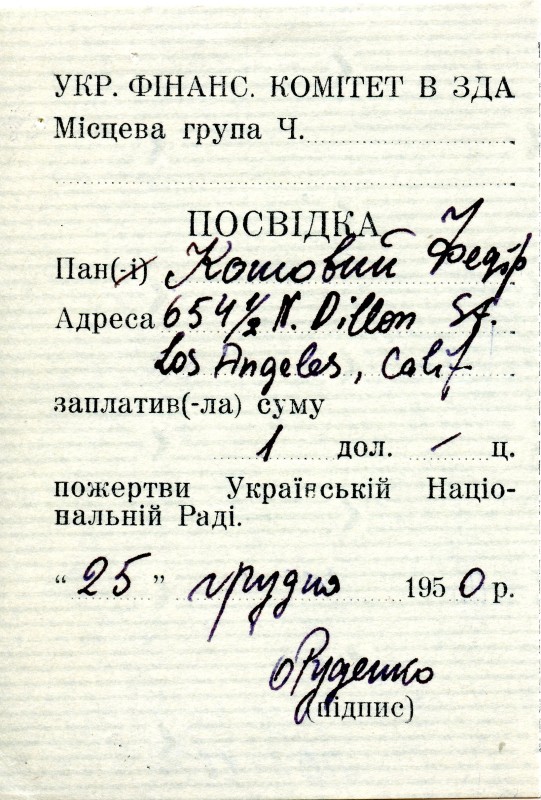 УКР. ФІНАНС. КОМІТЕТ В ЗДА
Місцева група Ч.
ПОСВІДКА
Пан(-і) Кошовий Федір
Адреса 654 1/2 N. Dillon St.
Los Angeles, Calif
заплатив(-ла) суму
1 дол. — ц.
пожертви Українській Націо-
нальній Раді.
“ 25 ” грудня 1950 р.
Руденко
(підпис)